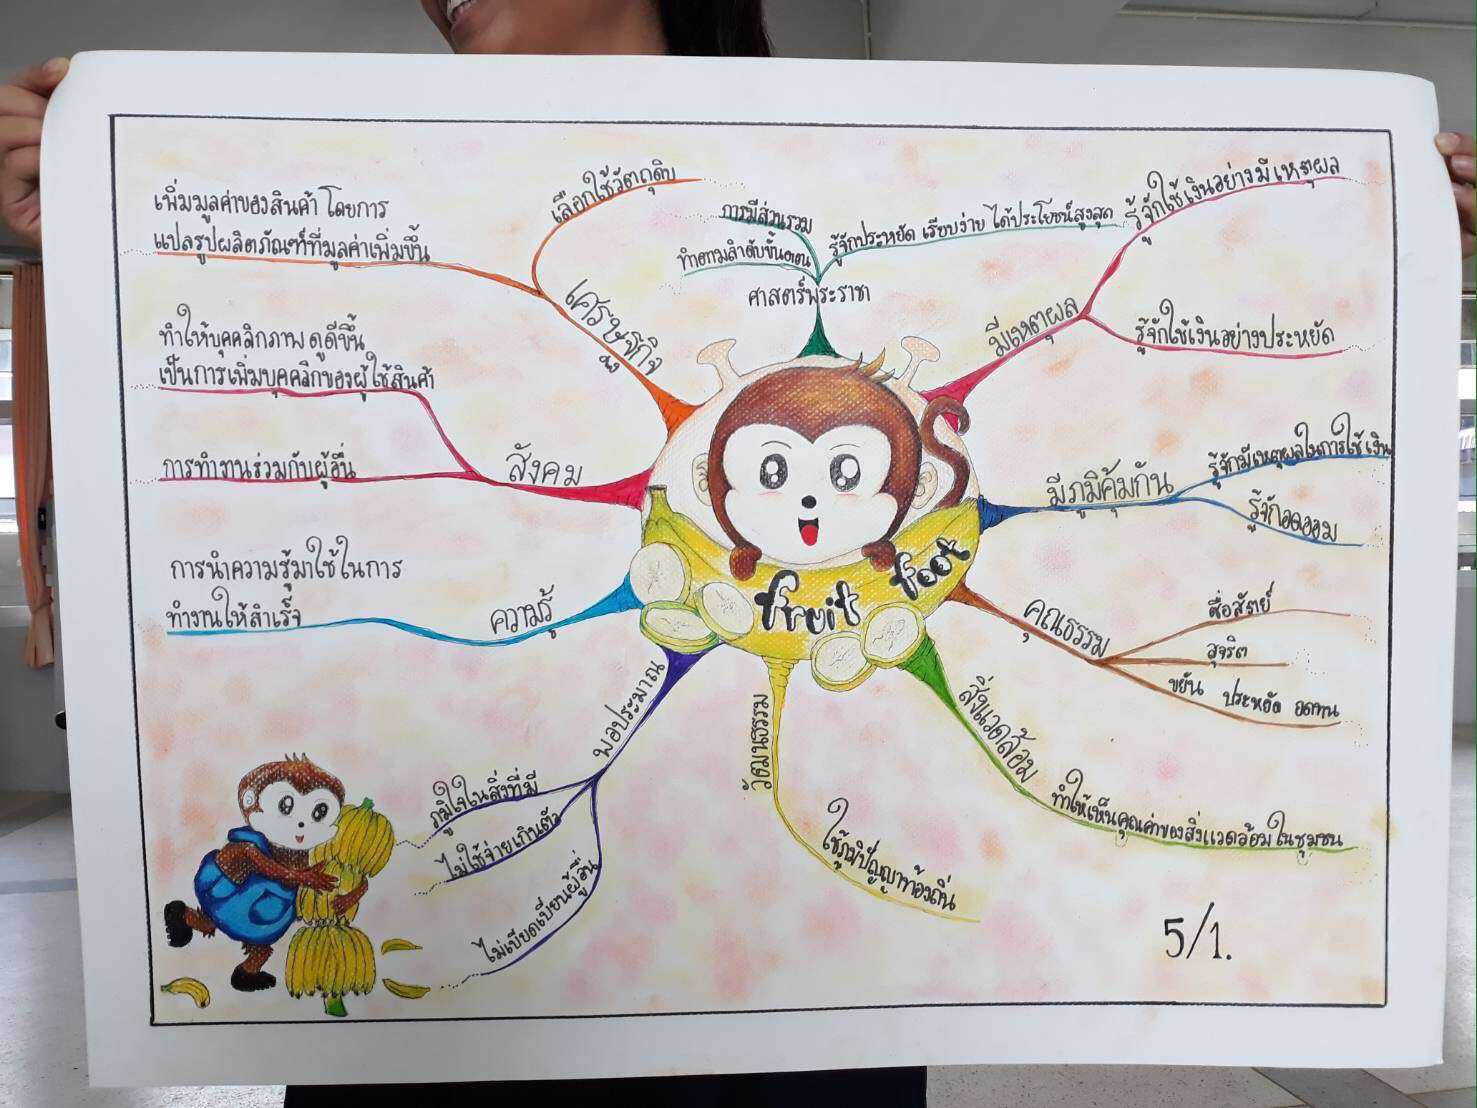 เพิ่มมูลค่าของสินค้า โดยการ
แปลรูปผลิตภัณฑ์ที่มูลค่าเพิ่มขึ้น
เลือกใช้วัตถุดิบ
เศรษฐกิจ
ทำให้บุคคลิกภาพ ดูดีขึ้น
เป็นการเพิ่มบุคคลิกของผู้ใช้สินค้า
การทำงานร่วมกับผู้อื่น
สังคม
การนำความรู้มาใช้ในการ
ทำงานให้สำเร็จ
ความรู้
พอประมาณ
ภูมิใจในสิ่งที่มี
ไม่ใช้จ่ายเกินตัว
ไม่เบียดเบียนผู้อื่น
การมีส่วนรวม
ทำตามลำดับขั้นตอน
รู้จักประหยัด เรียบง่าย ได้ประโยชน์สูงสุด
ศาสตร์พระราชา
มีเหตุผล
รู้จักใช้เงินอย่างมีเหตุผล
รู้จักใช้เงินอย่างประหยัด
มีภูมิคุ้มกัน
รู้จักมีเหตุผลในการใช้เงิน
รู้จักอดออม
คุณธรรม
ซื่อสัตย์
สุจริต
ขยัน ประหยัด อดทน
สิ่งแวดล้อม
ทำให้เห็นคุณค่าของสิ่งแวดล้อมในชุมชน
วัฒนธรรม
ใช้ภูมิปัญญาท้องถิ่น
fruit foot
5/1.